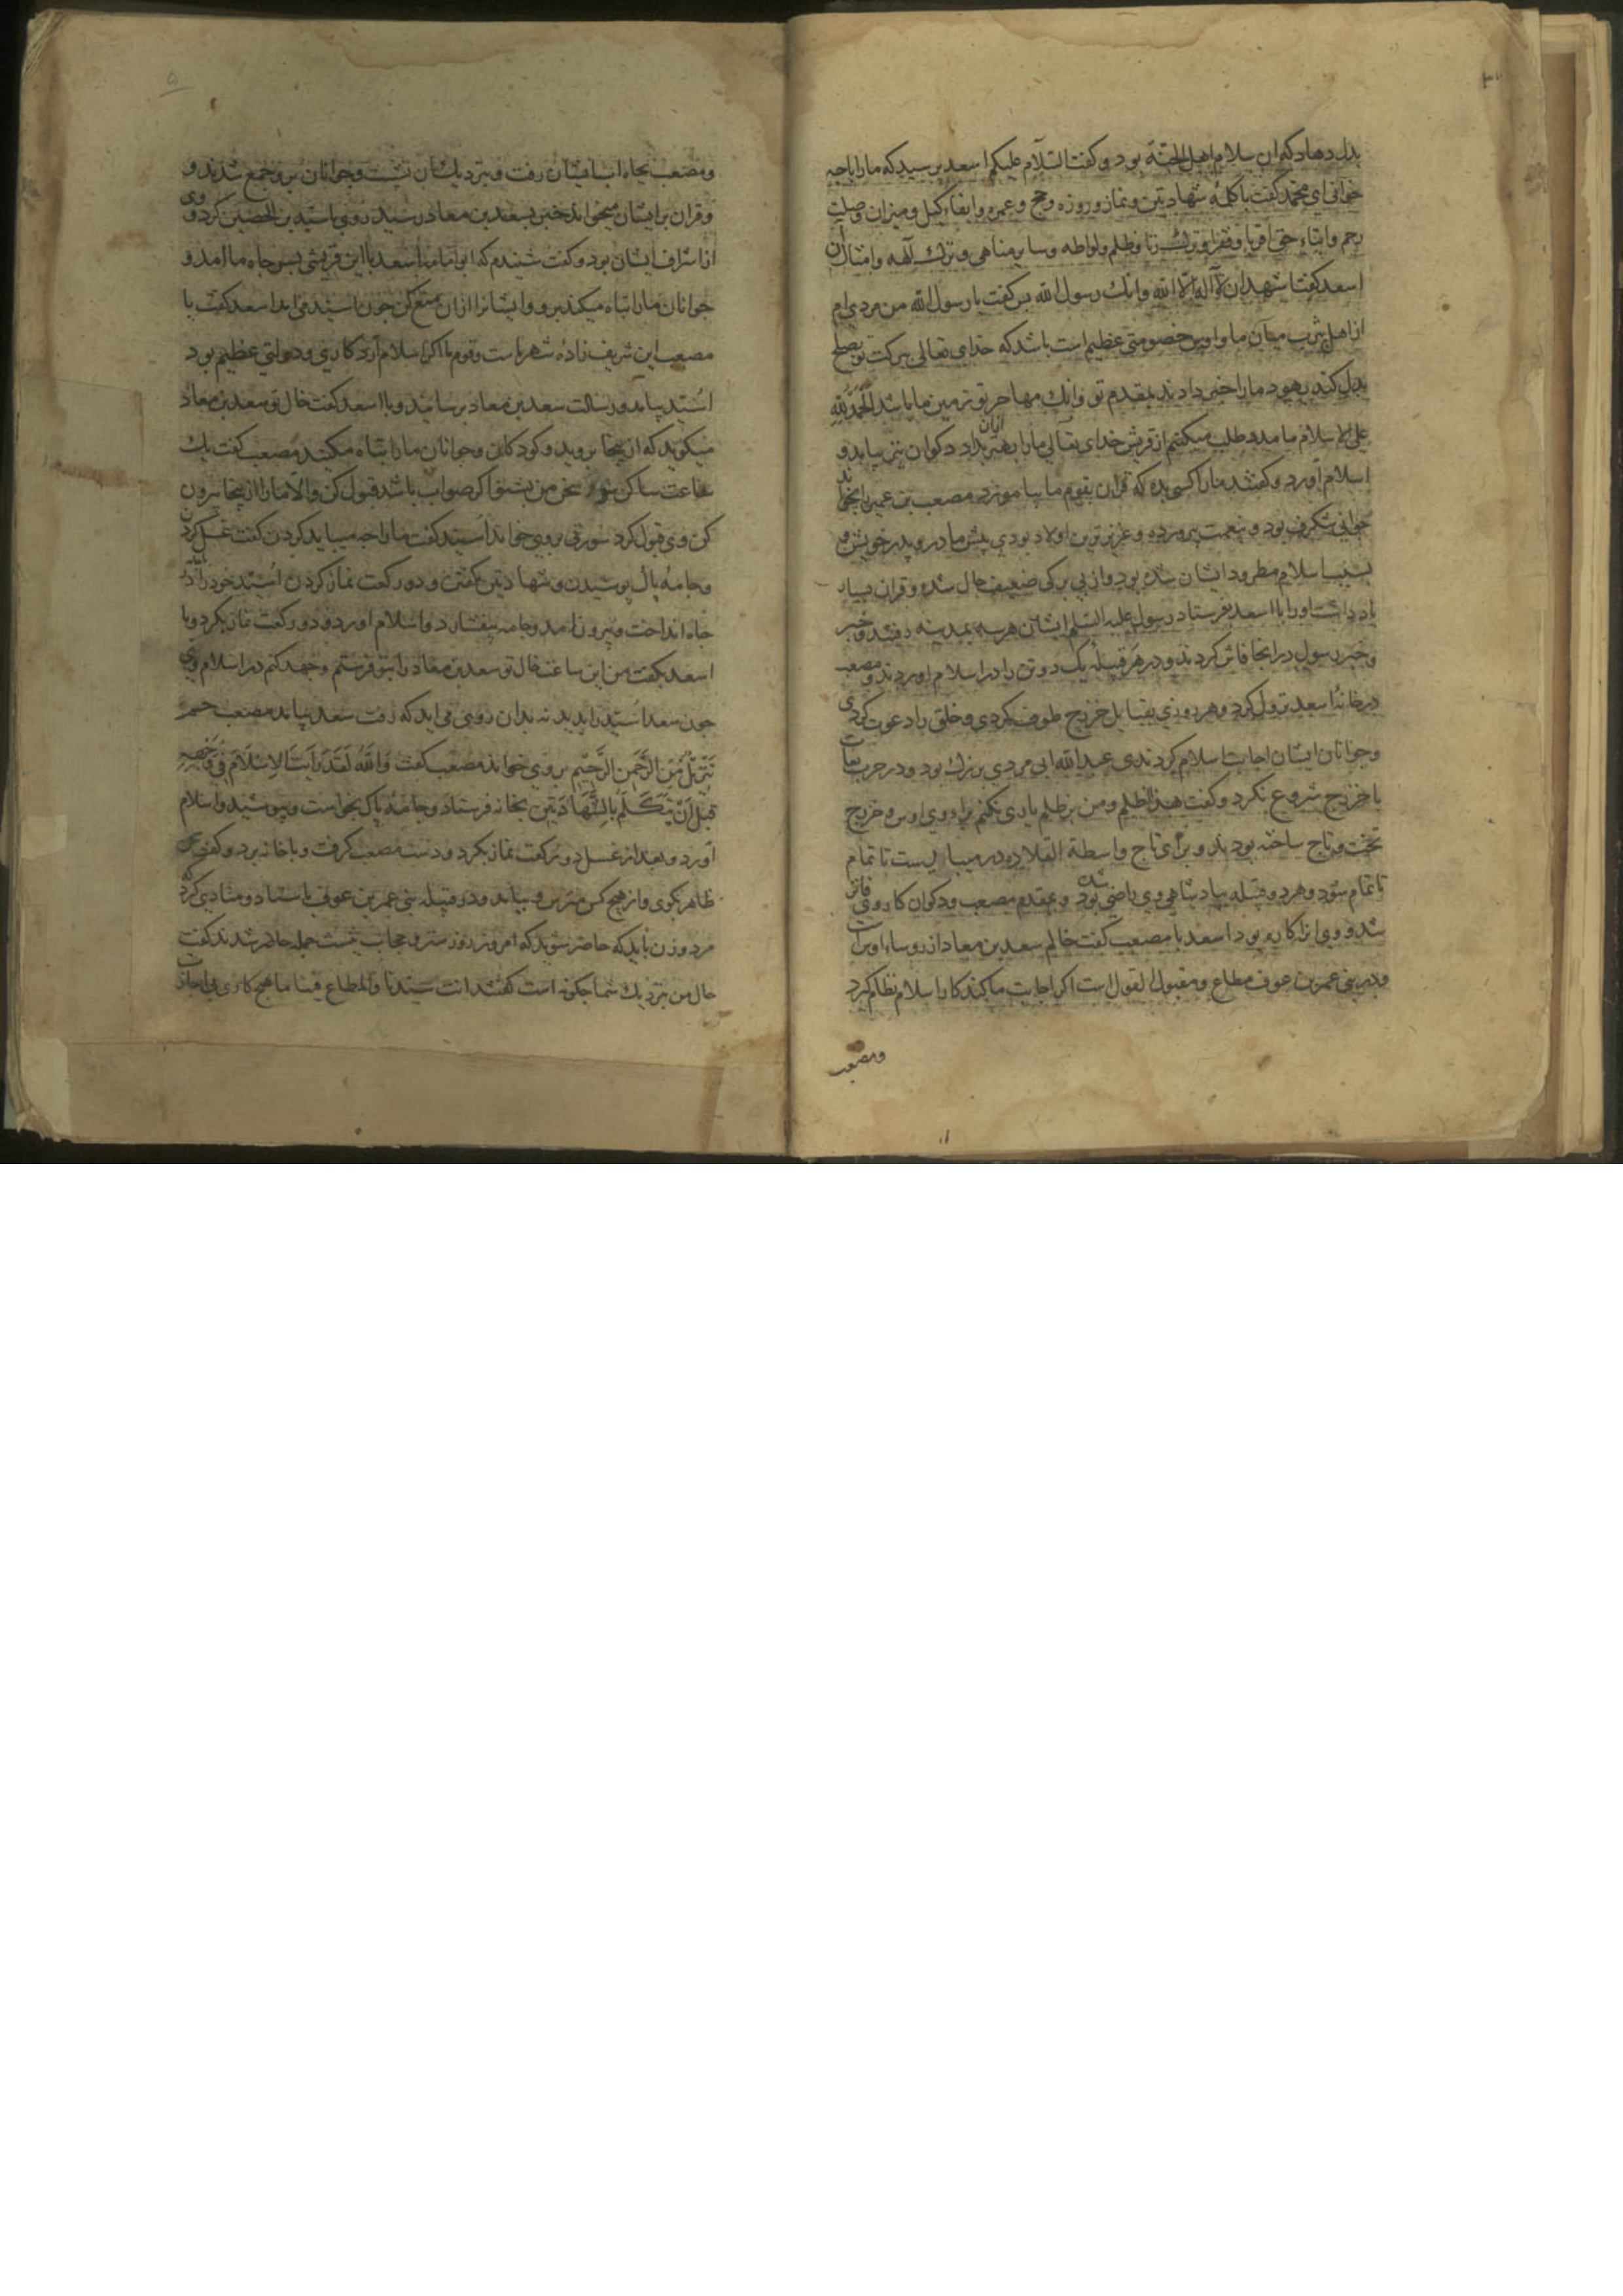 بدل دهاد که ان سلام اهل الجنة بود و کفت السلام علیکم اسعد پرسید که ما را باجه
خوانی ای محمد کفت با کلمهٔ شهادتین و نماز و روزه و حج و عمره و ایفاء کیل و میزان وصلت
رحم وایتاء حق اقربا و فقرا و ترک زنا و ظلم و لواطه و سایر مناهی و ترک آلهه و امثال آن
اسعد کفت اشهد ان لا آله الا الله وانک رسول الله پس کفت یا رسول الله من مردی ام
از اهل یثرب میآن ما و اوس خصومتی عظیم است باشد که خدای تعالی ببرکت تو بصلح
بدل کند یهود ما را خبر دادند بمقدم تو وانک مهاجر تو زمین ما باشد الحمد لله
علی الاسلام ما مدد طلب میکنیم از قریش خدای تعالی ما را بهتر از آن بداد دکوان نیز بیامد و
اسلام آورد و کفتند ما را کسی بده که قران بقوم ما بیاموزد مصعب بن عمیر را بخواند
جوانی شکرف بود و بنعمت پرورده و عزیزترین اولاد بودی پیش مادر و پدر خویش و
بسبب اسلام مطرود ایشان شده بود و از بی برکی ضعیف حال شده و قران بسیار
یاد داشت او را با اسعد بفرستاد رسول علیه السلم ایشان هر سه بمدینه رفتند و خبر
و خبر رسول در انجا فاش کردند و در هر قبیلهٔ یک دو تن را در اسلام اوردند و مصعب
در خانهٔ اسعد نزول کرد و هر روزی بقبایل خزرج طوف کردی و خلق را دعوت کردی
و جوانان ایشان اجابت اسلام کردندی عبد الله ابی مردی بزرک بود و در حرب بعاث
با خزرج شروع نکرد و کفت هذا لظلم و من بر ظلم یاری نکنم برای وی اوس و خزرج
تخت و تاج ساخته بودند و برای تاج واسطة القلاده در میبایست تا تمام
تا تمام شود و هر دو قبیله بپادشاهی وی راضی شده بود و بمقدم مصعب و دکوان کار وی فاتر
شد و وی از کاره بود اسعد با مصعب کفت خالم سعد بن معاد از روساء اوس است
و در بنی عمر بن عوف مطاع و مقبول القول است اکر اجابت ما کند کار اسلام نظام کیرد
ومصعب
ومصعب بجاه ایشان رفت و بنزدیک ایشان نشست و جوانان برو جمع شدند و
و قران بر ایشان میخواند خبر بسعد بن معاد رسید روی باسید بن الحصین کرد و وی
از اشراف ایشان بود و کفت شنیدم که ابو امامه اسعد با این قریشی بسر جاه ما آمد و
جوانان ما را تباه میکند برو و ایشانرا ازان منع کن چون اسید فرا آمد اسعد کفت با
مصعب این شریف زادهٔ شهر ماست و قوم ما اکر اسلام آرد کاری و دولتی عظیم بود
اسید بیامد و رسالت سعد بن معاد برسانید و با اسعد کفت خال تو سعد بن معاد
میکوید که از ینجا بروید و کودکان و جوانان ما را تباه مکنید مصعب کفت یک
ساعت ساکن شو و سخن من بشنو اکر صواب باشد قبول کن والا ما را از ینجا بیرون
کن وی قبول کرد سورتی بروی خواند اسید کفت ما را چه میباید کردن کفت غسل کردن
و جامهٔ پاک پوشیدن و شهادتین کفتن و دو رکعت نماز کردن اسید خود را در
جاه انداخت و بیرون آمد و جامه بیفشارد و اسلام اورد و دو رکعت نماز بکرد و با
اسعد بکفت من این ساعت خال تو سعد بن معاد را بتو فرستم و جهد کنم در اسلام وی
چون سعد اسید را بدید نه بدان روی می اید که رفت سعد بیامد مصعب حم
تنزیل من الرحمن الرحیم بروی خواند مصعب کفت والله لقد رأیت الاسلام فی وجهه
قبل ان یتکلم بالشهادتین بخانه فرستاد و جامهٔ پاک بخواست و بپوشید و اسلام
آورد و بعد از غسل دو رکعت نماز بکرد و دست مصعب کرفت و با خانه برد و کفت
ظاهر بکوی و از هیچ کس مترس و بیامد و در قبیله بنی عمر بن عوف باستاد و منادی کرد که
مرد و زن باید که حاضر شوید که امروز روز ستر و حجاب نیست جمله حاضر شدند کفت
حال من بنزدیک شما چکونه است کفتند انت سیدنا والمطاع فینا ما هیچ کاری بی اجازت